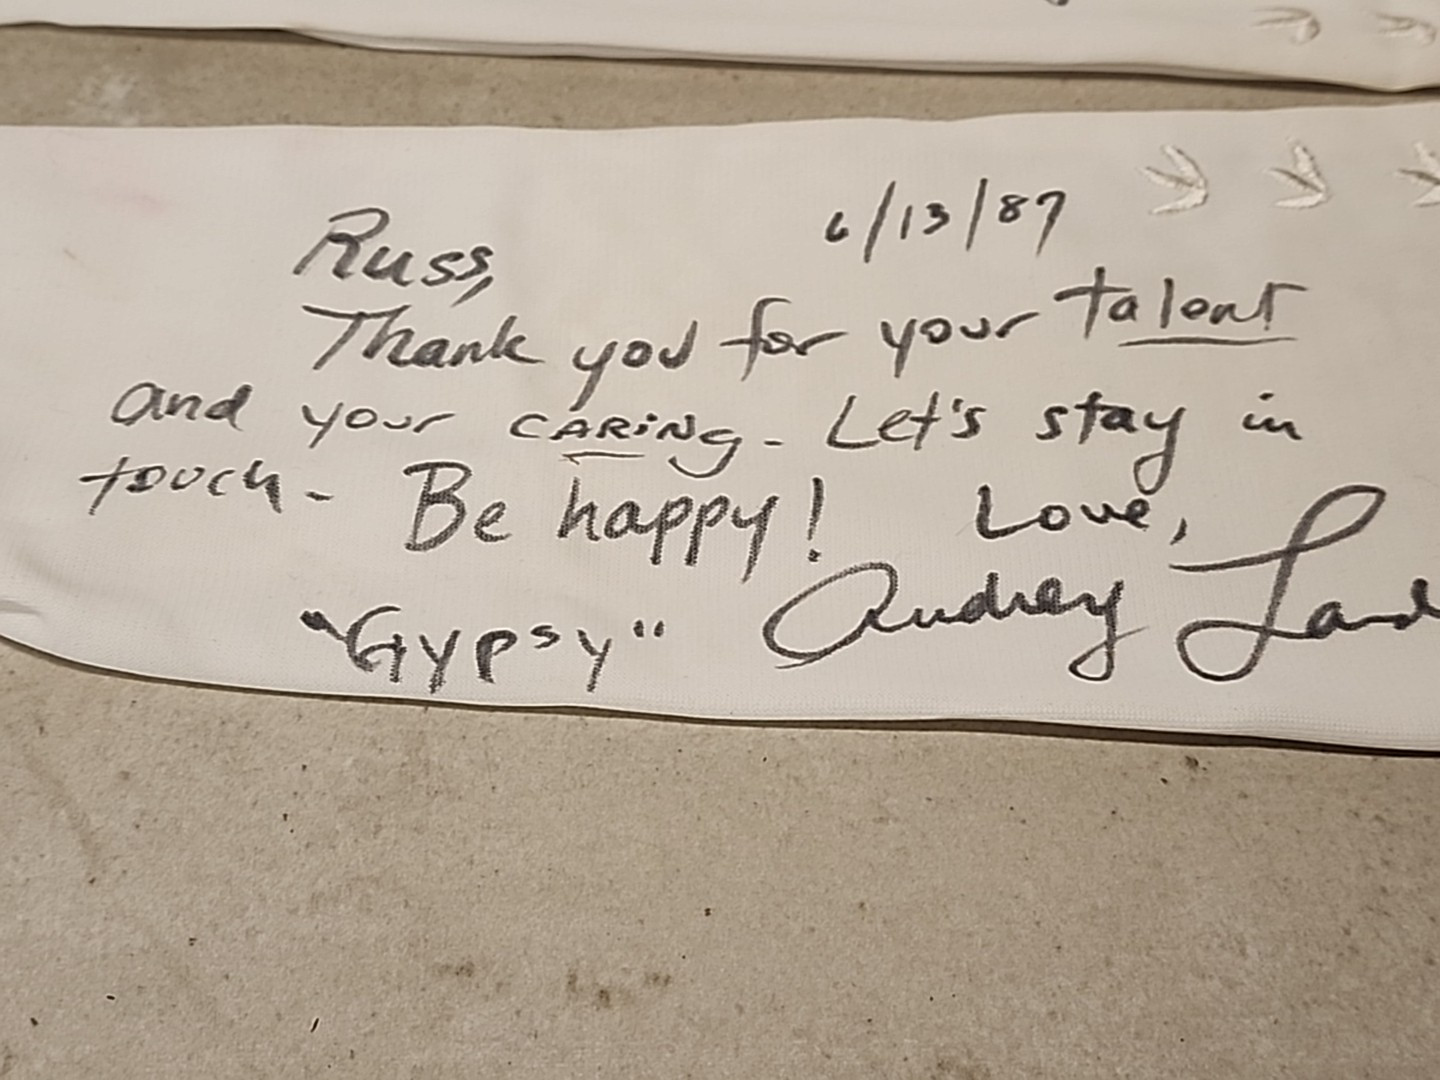 6/13/87
Russ,
Thank you for your talent
and your CARiNg - Let's stay in
touch - Be happy! Love,
"Gypsy" Audrey Land